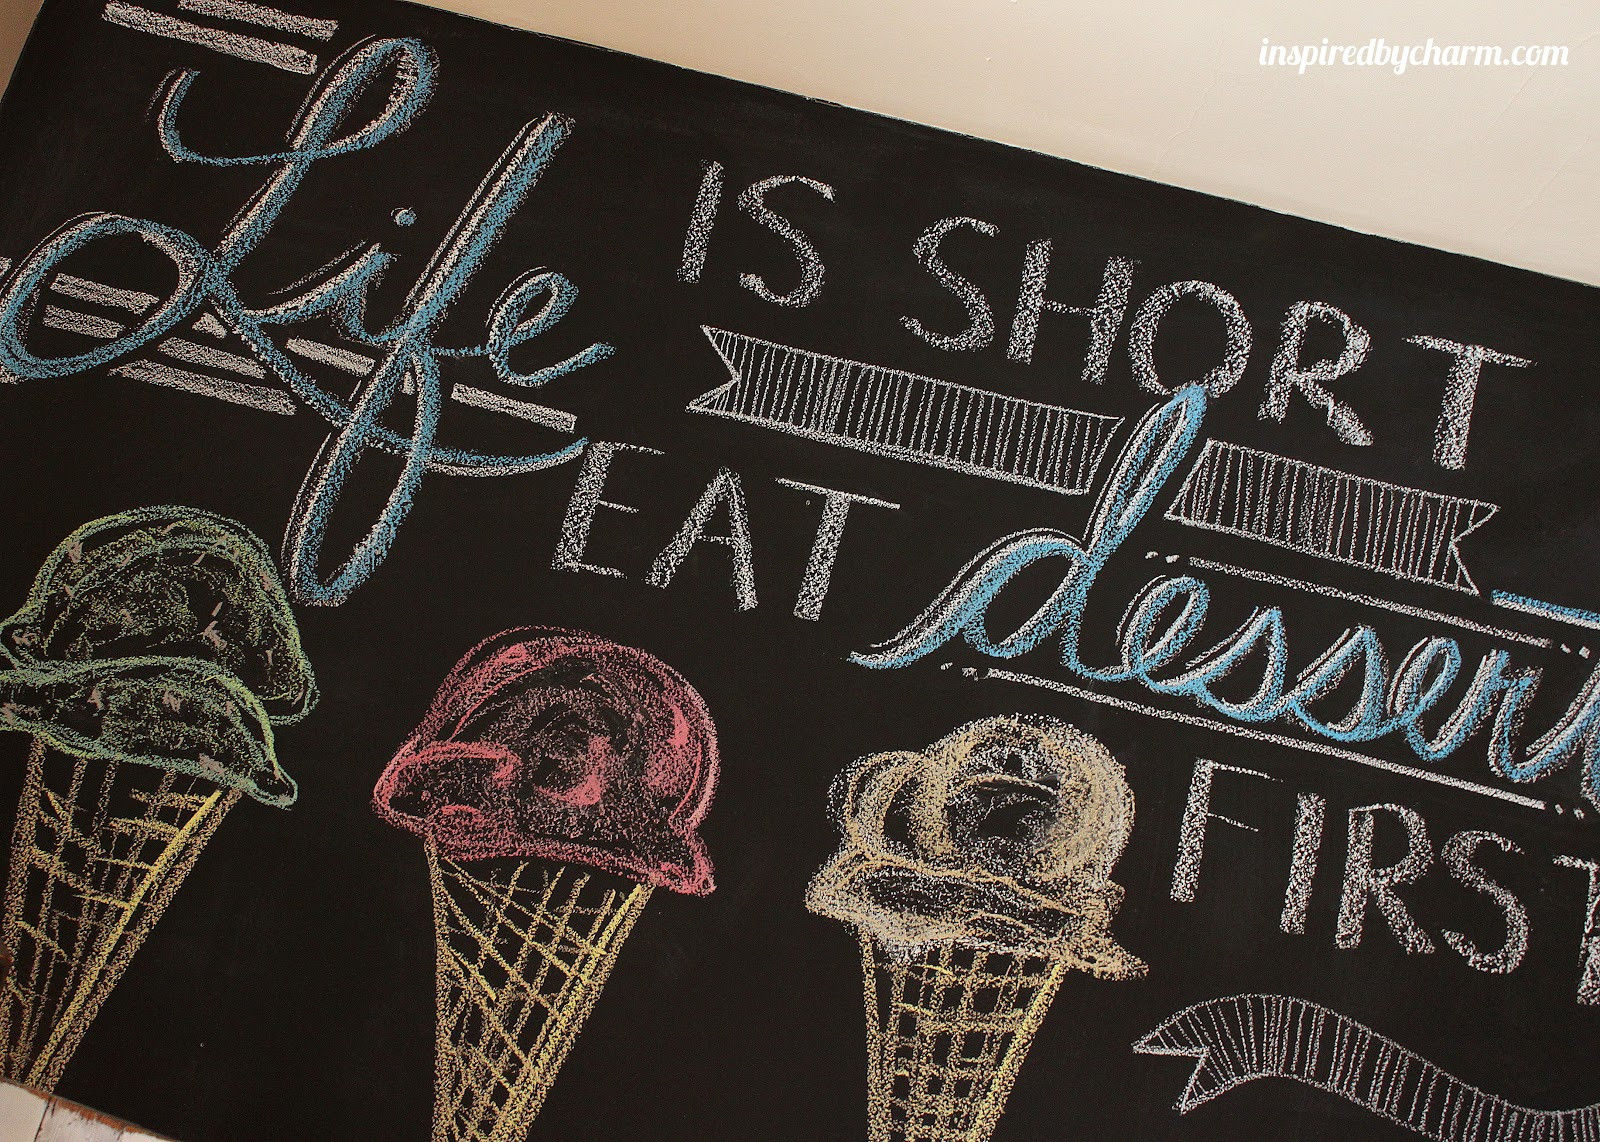 inspiredbycharm.com
Life IS SHORT
EAT dessert
FIRST